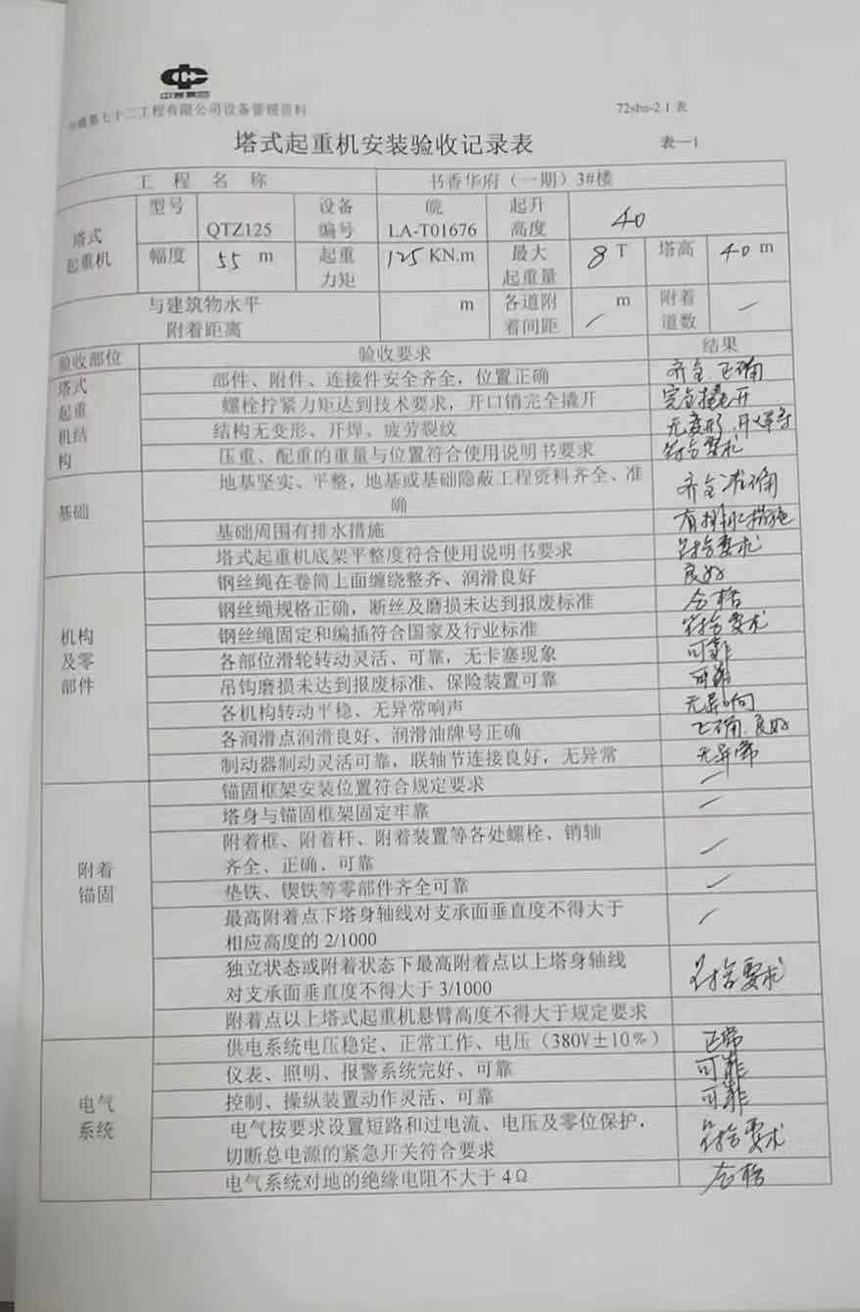 建第七十二工程有限公司设备管理资料 72sha-2.1 表
塔式起重机安装验收记录表 表一1
工程名称 书香华府（一期）3#楼
塔式起重机 型号 QTZ125 设备编号 皖LA-T01676 起升高度 40
幅度 55 m 起重力矩 125 KN.m 最大起重量 8 T 塔高 40 m
与建筑物水平附着距离 m 各道附着间距 / m 附着道数 /
验收部位 验收要求 结果
塔式起重机结构 部件、附件、连接件安全齐全，位置正确 齐全.正确
螺栓拧紧力矩达到技术要求，开口销完全撬开 完全撬开
结构无变形、开焊、疲劳裂纹 无变形.开焊等
压重、配重的重量与位置符合使用说明书要求 符合要求
基础 地基坚实、平整，地基或基础隐蔽工程资料齐全、准确 齐全准确
基础周围有排水措施 有排水措施
塔式起重机底架平整度符合使用说明书要求 符合要求
机构及零部件 钢丝绳在卷筒上面缠绕整齐、润滑良好 良好
钢丝绳规格正确，断丝及磨损未达到报废标准 合格
钢丝绳固定和编插符合国家及行业标准 符合要求
各部位滑轮转动灵活、可靠，无卡塞现象 可靠
吊钩磨损未达到报废标准、保险装置可靠 可靠
各机构转动平稳、无异常响声 无异响
各润滑点润滑良好、润滑油牌号正确 正确.良好
制动器制动灵活可靠，联轴节连接良好，无异常 无异常
附着锚固 锚固框架安装位置符合规定要求 /
塔身与锚固框架固定牢靠 /
附着框、附着杆、附着装置等各处螺栓、销轴齐全、正确、可靠 /
垫铁、锲铁等零部件齐全可靠 /
最高附着点下塔身轴线对支承面垂直度不得大于相应高度的 2/1000 /
独立状态或附着状态下最高附着点以上塔身轴线对支承面垂直度不得大于 3/1000 符合要求
附着点以上塔式起重机悬臂高度不得大于规定要求
电气系统 供电系统电压稳定、正常工作、电压（380V±10%） 正常
仪表、照明、报警系统完好、可靠 可靠
控制、操纵装置动作灵活、可靠 可靠
电气按要求设置短路和过电流、电压及零位保护，切断总电源的紧急开关符合要求 符合要求
电气系统对地的绝缘电阻不大于 4Ω 合格